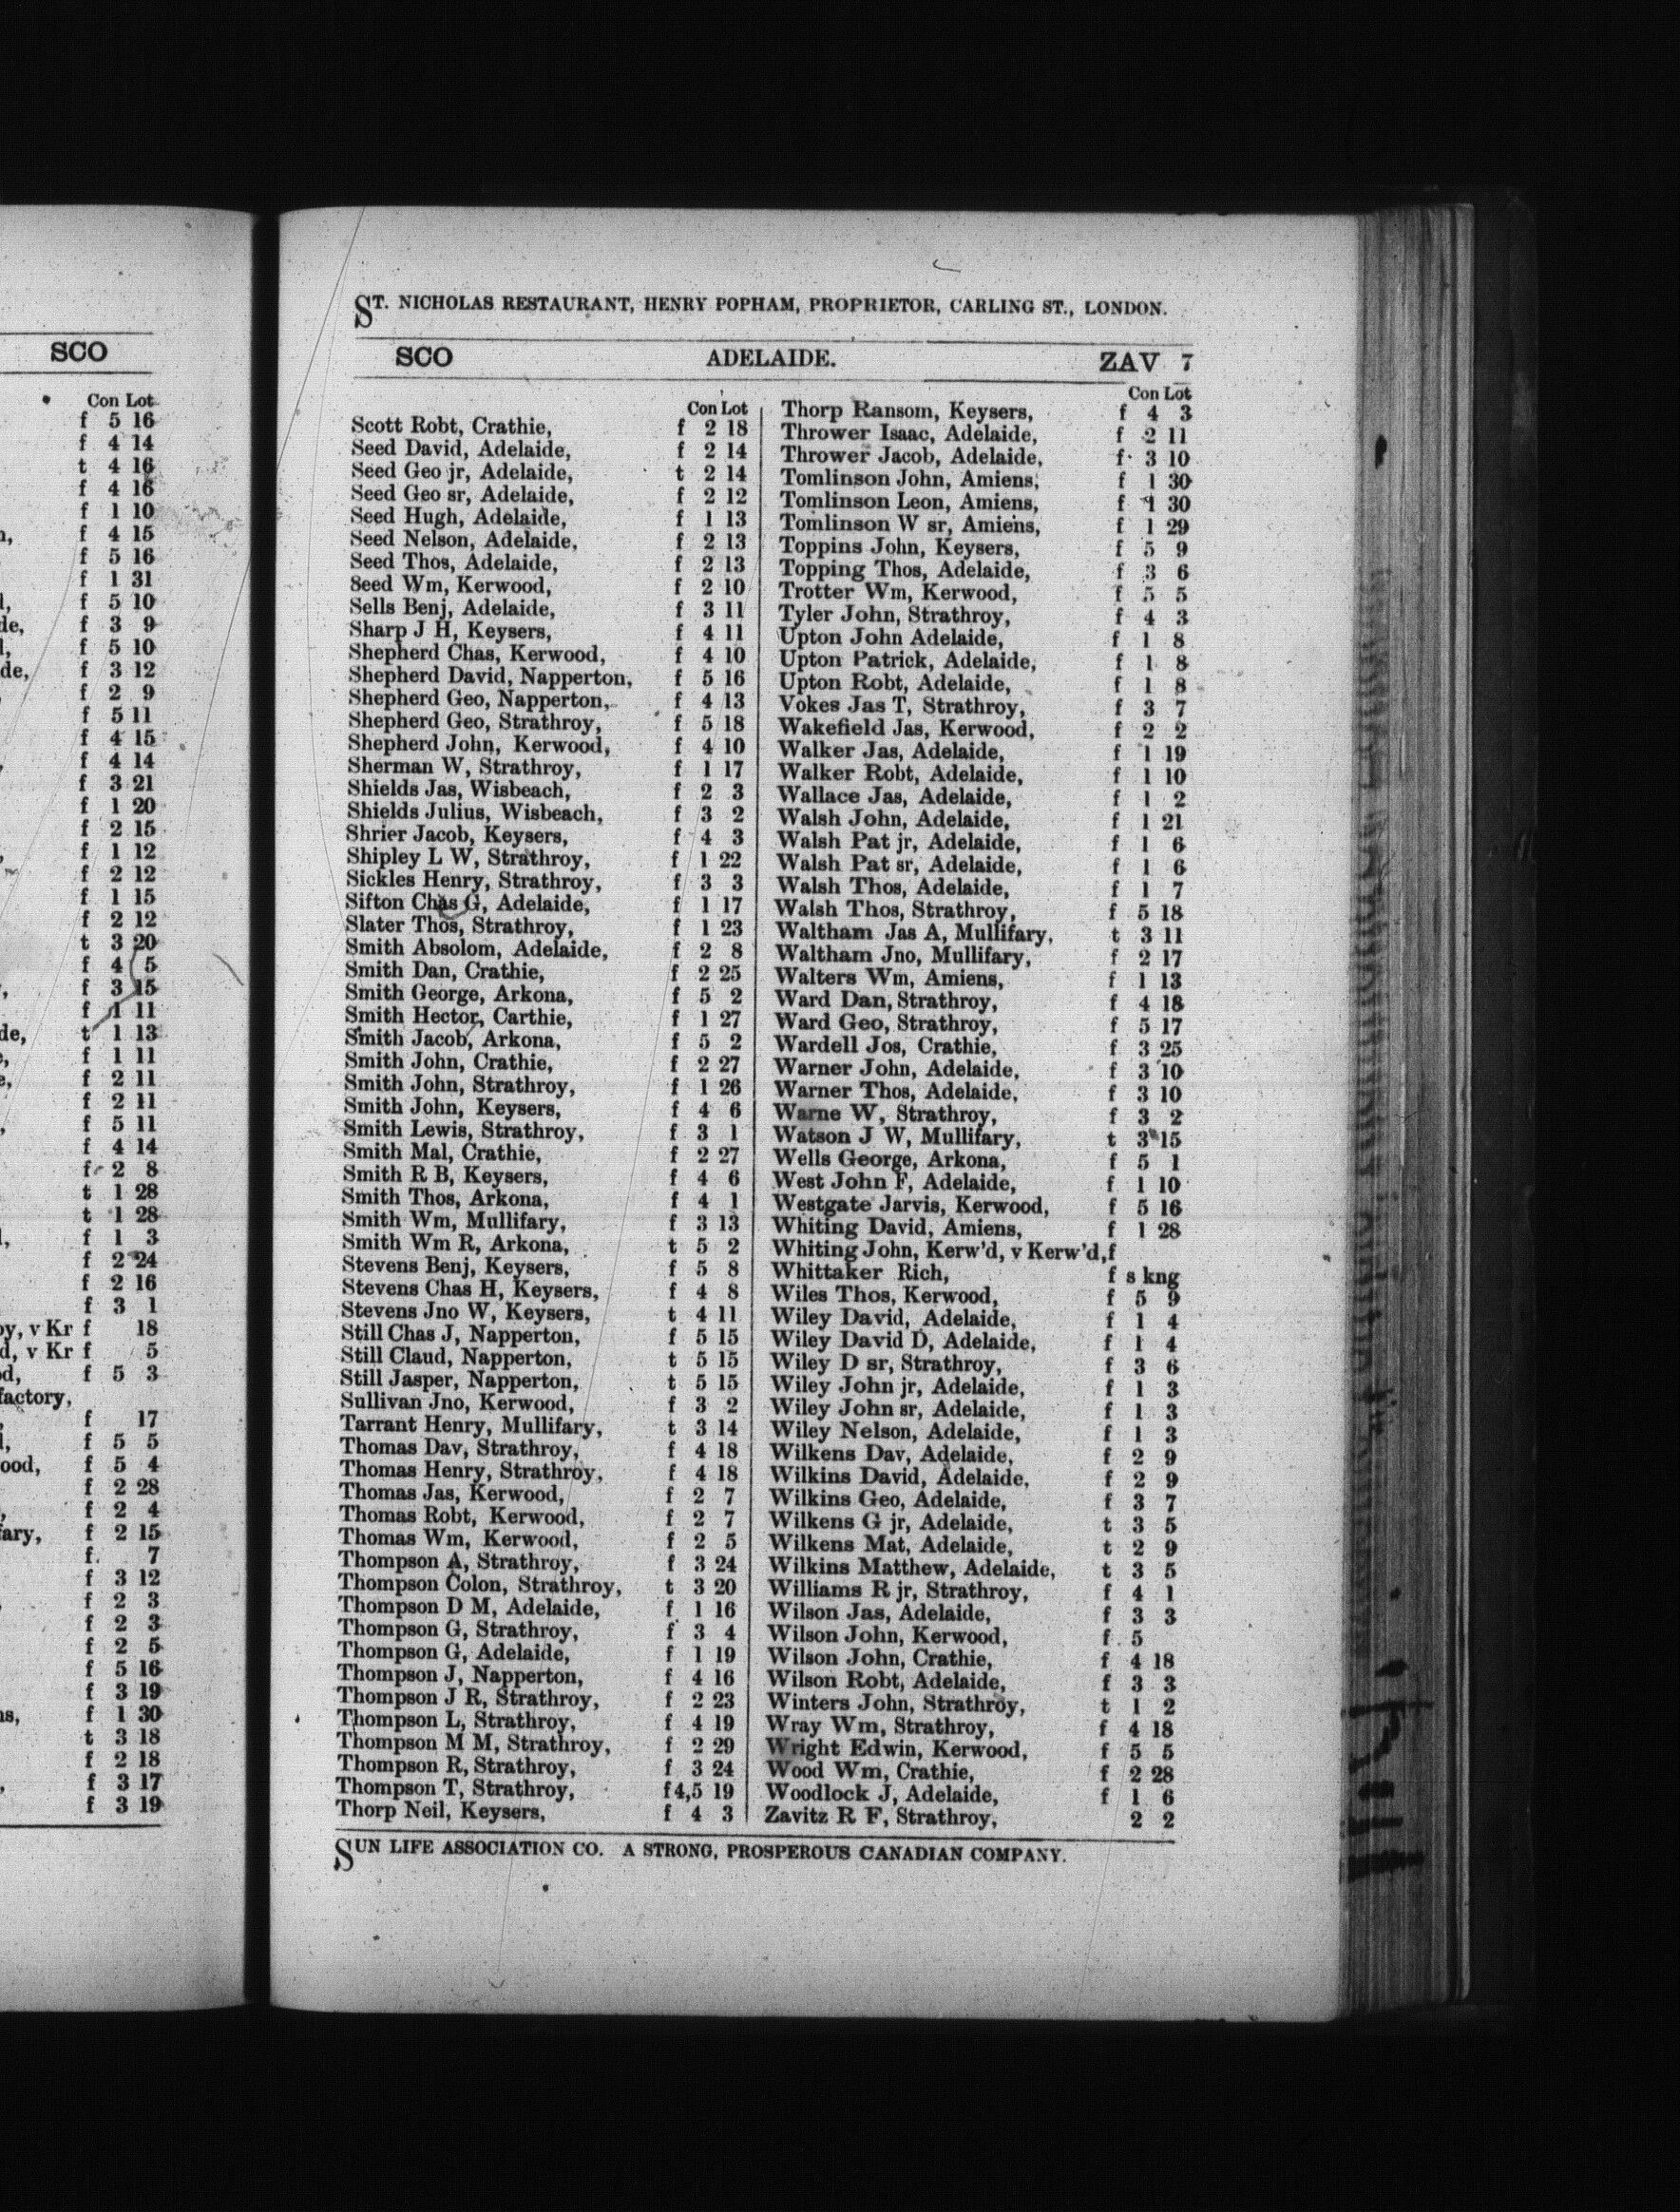 SCO
Con Lot
f 5 16
f 4 14
t 4 16
f 4 16
f 1 10
f 4 15
f 5 16
f 1 31
f 5 10
de, f 3 9
f 5 10
de, f 3 12
f 2 9
f 5 11
f 4 15
f 4 14
f 3 21
f 1 20
f 2 15
f 1 12
f 2 12
f 1 15
f 2 12
t 3 20
f 4 5
f 3 15
f 1 11
de, t 1 13
f 1 11
f 2 11
f 2 11
f 5 11
f 4 14
f 2 8
t 1 28
t 1 28
f 1 3
f 2 24
f 2 16
f 3 1
oy, v Kr f 18
d, v Kr f 5
od, f 5 3
factory,
f 17
f 5 5
ood, f 5 4
f 2 28
f 2 4
fary, f 2 15
f. 7
f 3 12
f 2 3
f 2 3
f 2 5
f 5 16
f 3 19
ns, f 1 30
t 3 18
f 2 18
f 3 17
f 3 19
ST. NICHOLAS RESTAURANT, HENRY POPHAM, PROPRIETOR, CARLING ST., LONDON.
SCO ADELAIDE. ZAV 7
Con Lot
Scott Robt, Crathie, f 2 18
Seed David, Adelaide, f 2 14
Seed Geo jr, Adelaide, t 2 14
Seed Geo sr, Adelaide, f 2 12
Seed Hugh, Adelaide, f 1 13
Seed Nelson, Adelaide, f 2 13
Seed Thos, Adelaide, f 2 13
Seed Wm, Kerwood, f 2 10
Sells Benj, Adelaide, f 3 11
Sharp J H, Keysers, f 4 11
Shepherd Chas, Kerwood, f 4 10
Shepherd David, Napperton, f 5 16
Shepherd Geo, Napperton, f 4 13
Shepherd Geo, Strathroy, f 5 18
Shepherd John, Kerwood, f 4 10
Sherman W, Strathroy, f 1 17
Shields Jas, Wisbeach, f 2 3
Shields Julius, Wisbeach, f 3 2
Shrier Jacob, Keysers, f 4 3
Shipley L W, Strathroy, f 1 22
Sickles Henry, Strathroy, f 3 3
Sifton Chas G, Adelaide, f 1 17
Slater Thos, Strathroy, f 1 23
Smith Absolom, Adelaide, f 2 8
Smith Dan, Crathie, f 2 25
Smith George, Arkona, f 5 2
Smith Hector, Carthie, f 1 27
Smith Jacob, Arkona, f 5 2
Smith John, Crathie, f 2 27
Smith John, Strathroy, f 1 26
Smith John, Keysers, f 4 6
Smith Lewis, Strathroy, f 3 1
Smith Mal, Crathie, f 2 27
Smith R B, Keysers, f 4 6
Smith Thos, Arkona, f 4 1
Smith Wm, Mullifary, f 3 13
Smith Wm R, Arkona, t 5 2
Stevens Benj, Keysers, f 5 8
Stevens Chas H, Keysers, f 4 8
Stevens Jno W, Keysers, t 4 11
Still Chas J, Napperton, f 5 15
Still Claud, Napperton, t 5 15
Still Jasper, Napperton, t 5 15
Sullivan Jno, Kerwood, f 3 2
Tarrant Henry, Mullifary, t 3 14
Thomas Dav, Strathroy, f 4 18
Thomas Henry, Strathroy, f 4 18
Thomas Jas, Kerwood, f 2 7
Thomas Robt, Kerwood, f 2 7
Thomas Wm, Kerwood, f 2 5
Thompson A, Strathroy, f 3 24
Thompson Colon, Strathroy, t 3 20
Thompson D M, Adelaide, f 1 16
Thompson G, Strathroy, f 3 4
Thompson G, Adelaide, f 1 19
Thompson J, Napperton, f 4 16
Thompson J R, Strathroy, f 2 23
Thompson L, Strathroy, f 4 19
Thompson M M, Strathroy, f 2 29
Thompson R, Strathroy, f 3 24
Thompson T, Strathroy, f 4,5 19
Thorp Neil, Keysers, f 4 3
Con Lot
Thorp Ransom, Keysers, f 4 3
Thrower Isaac, Adelaide, f 2 11
Thrower Jacob, Adelaide, f 3 10
Tomlinson John, Amiens, f 1 30
Tomlinson Leon, Amiens, f 1 30
Tomlinson W sr, Amiens, f 1 29
Toppins John, Keysers, f 5 9
Topping Thos, Adelaide, f 3 6
Trotter Wm, Kerwood, f 5 5
Tyler John, Strathroy, f 4 3
Upton John Adelaide, f 1 8
Upton Patrick, Adelaide, f 1 8
Upton Robt, Adelaide, f 1 8
Vokes Jas T, Strathroy, f 3 7
Wakefield Jas, Kerwood, f 2 2
Walker Jas, Adelaide, f 1 19
Walker Robt, Adelaide, f 1 10
Wallace Jas, Adelaide, f 1 2
Walsh John, Adelaide, f 1 21
Walsh Pat jr, Adelaide, f 1 6
Walsh Pat sr, Adelaide, f 1 6
Walsh Thos, Adelaide, f 1 7
Walsh Thos, Strathroy, f 5 18
Waltham Jas A, Mullifary, t 3 11
Waltham Jno, Mullifary, f 2 17
Walters Wm, Amiens, f 1 13
Ward Dan, Strathroy, f 4 18
Ward Geo, Strathroy, f 5 17
Wardell Jos, Crathie, f 3 25
Warner John, Adelaide, f 3 10
Warner Thos, Adelaide, f 3 10
Warne W, Strathroy, f 3 2
Watson J W, Mullifary, t 3 15
Wells George, Arkona, f 5 1
West John F, Adelaide, f 1 10
Westgate Jarvis, Kerwood, f 5 16
Whiting David, Amiens, f 1 28
Whiting John, Kerw'd, v Kerw'd, f
Whittaker Rich, f s kng
Wiles Thos, Kerwood, f 5 9
Wiley David, Adelaide, f 1 4
Wiley David D, Adelaide, f 1 4
Wiley D sr, Strathroy, f 3 6
Wiley John jr, Adelaide, f 1 3
Wiley John sr, Adelaide, f 1 3
Wiley Nelson, Adelaide, f 1 3
Wilkens Dav, Adelaide, f 2 9
Wilkins David, Adelaide, f 2 9
Wilkins Geo, Adelaide, f 3 7
Wilkens G jr, Adelaide, t 3 5
Wilkens Mat, Adelaide, t 2 9
Wilkins Matthew, Adelaide, t 3 5
Williams R jr, Strathroy, f 4 1
Wilson Jas, Adelaide, f 3 3
Wilson John, Kerwood, f 5
Wilson John, Crathie, f 4 18
Wilson Robt, Adelaide, f 3 3
Winters John, Strathroy, t 1 2
Wray Wm, Strathroy, f 4 18
Wright Edwin, Kerwood, f 5 5
Wood Wm, Crathie, f 2 28
Woodlock J, Adelaide, f 1 6
Zavitz R F, Strathroy, 2 2
SUN LIFE ASSOCIATION CO. A STRONG, PROSPEROUS CANADIAN COMPANY.